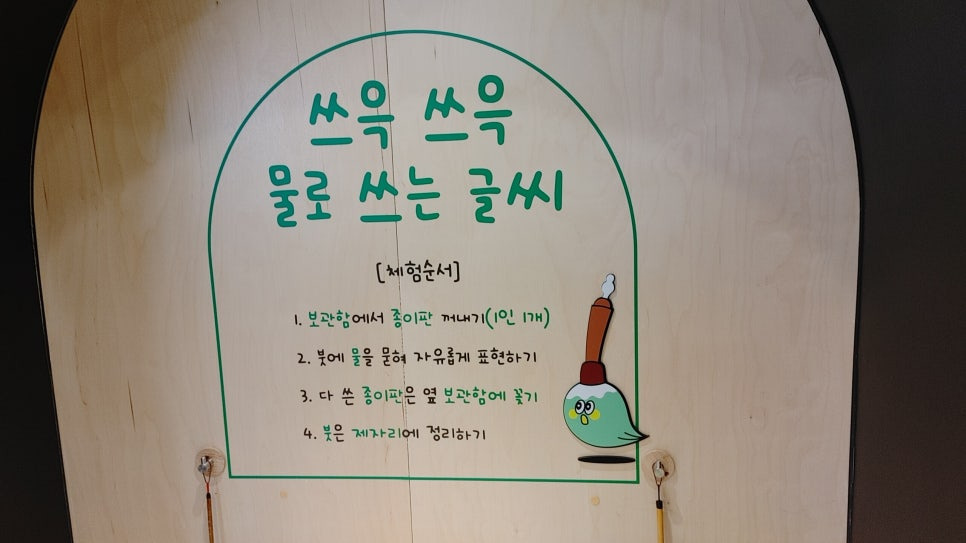 쓰윽 쓰윽
물로 쓰는 글씨
[체험순서]
1. 보관함에서 종이판 꺼내기(1인 1개)
2. 붓에 물을 묻혀 자유롭게 표현하기
3. 다 쓴 종이판은 옆 보관함에 꽂기
4. 붓은 제자리에 정리하기